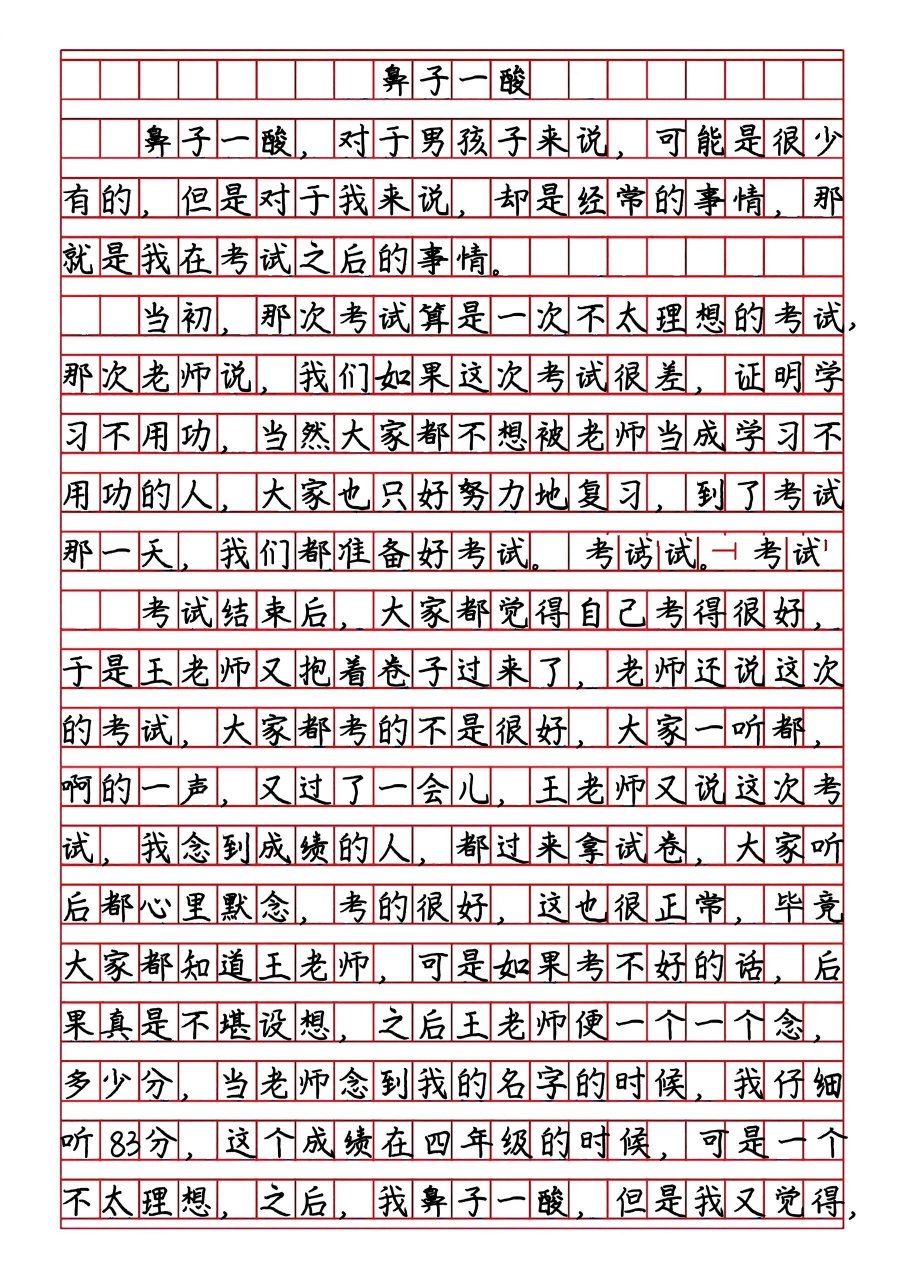 鼻子一酸
鼻子一酸，对于男孩子来说，可能是很少
有的，但是对于我来说，却是经常的事情，那
就是我在考试之后的事情。
当初，那次考试算是一次不太理想的考试，
那次老师说，我们如果这次考试很差，证明学
习不用功，当然大家都不想被老师当成学习不
用功的人，大家也只好努力地复习，到了考试
那一天，我们都准备好考试。 考试试。 考试
考试结束后，大家都觉得自己考得很好，
于是王老师又抱着卷子过来了，老师还说这次
的考试，大家都考的不是很好，大家一听都，
啊的一声，又过了一会儿，王老师又说这次考
试，我念到成绩的人，都过来拿试卷，大家听
后都心里默念，考的很好，这也很正常，毕竟
大家都知道王老师，可是如果考不好的话，后
果真是不堪设想，之后王老师便一个一个念，
多少分，当老师念到我的名字的时候，我仔细
听83分，这个成绩在四年级的时候，可是一个
不太理想，之后，我鼻子一酸，但是我又觉得，